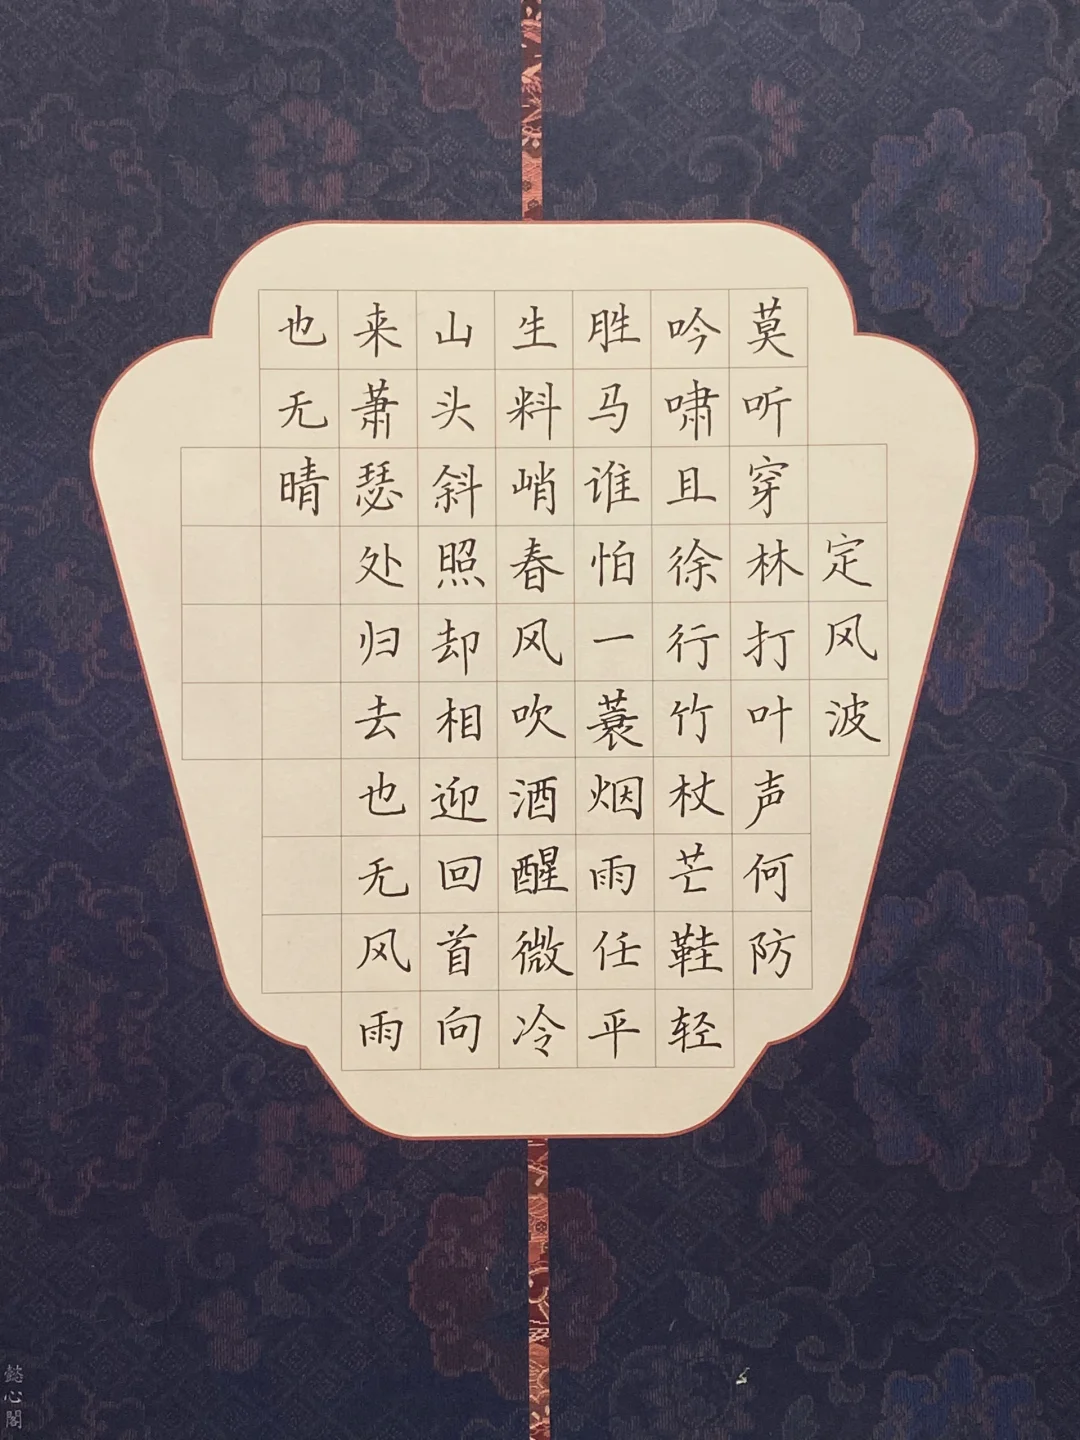 定风波
莫听穿林打叶声何防
吟啸且徐行竹杖芒鞋轻
胜马谁怕一蓑烟雨任平
生料峭春风吹酒醒微冷
山头斜照却相迎回首向
来萧瑟处归去也无风雨
也无晴
懿心閣